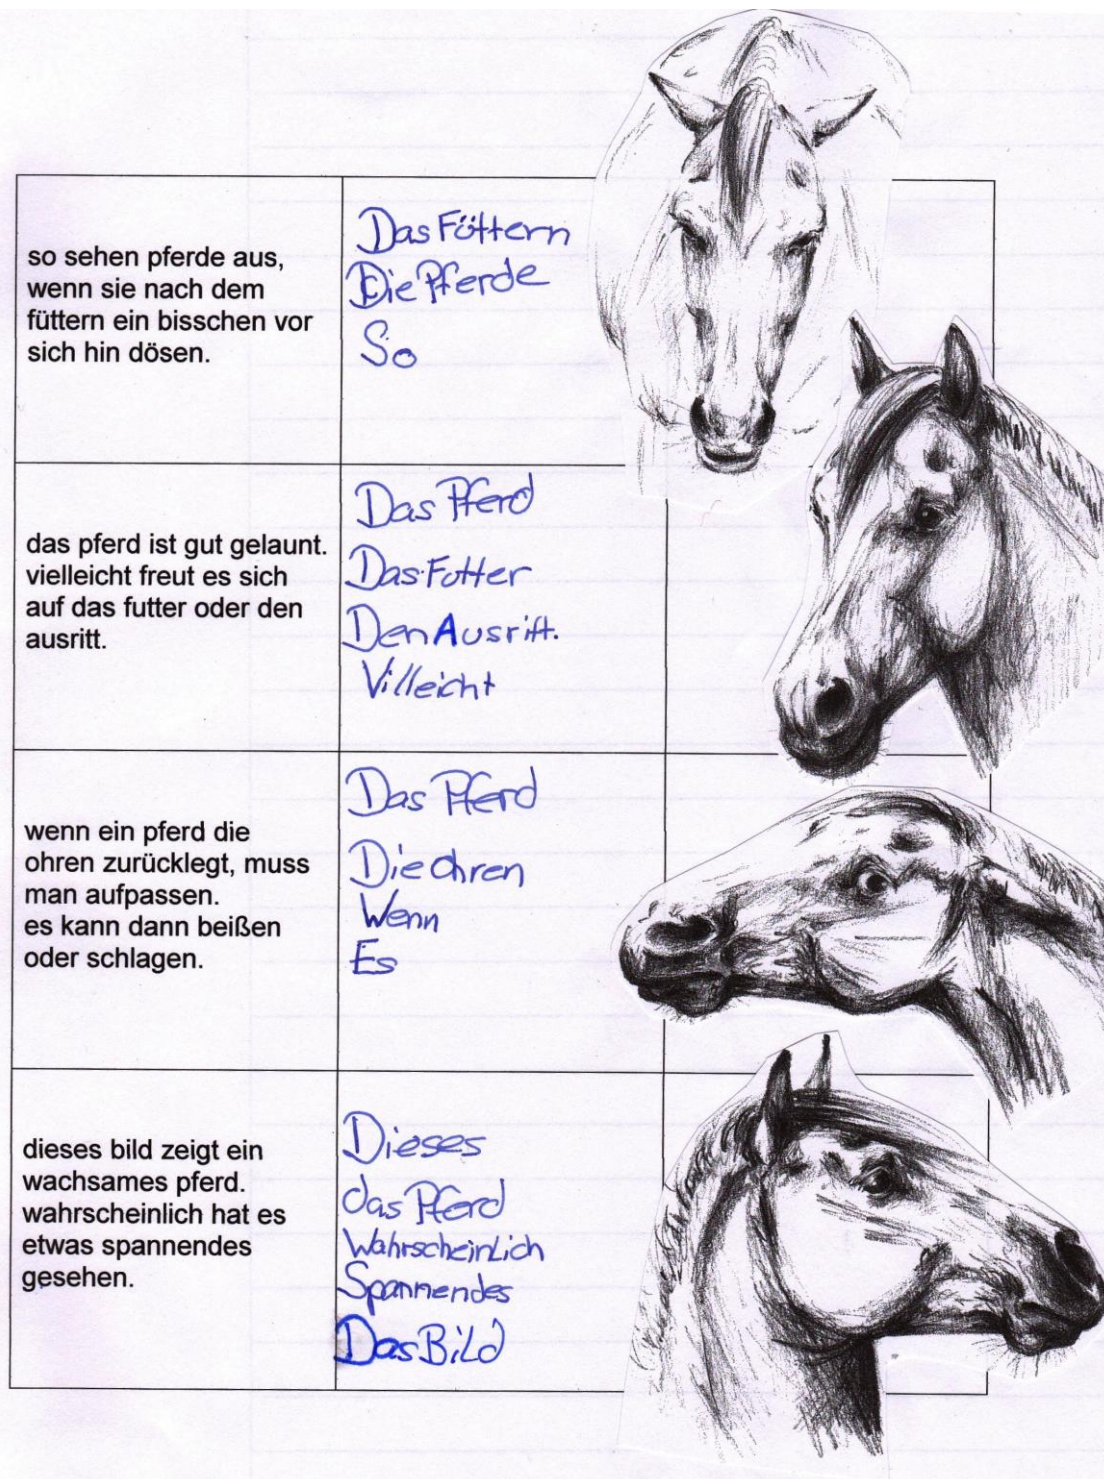 so sehen pferde aus,
wenn sie nach dem
füttern ein bisschen vor
sich hin dösen.
Das Füttern
Die Pferde
So
das pferd ist gut gelaunt.
vielleicht freut es sich
auf das futter oder den
ausritt.
Das Pferd
Das Futter
Den Ausritt.
Villeicht
wenn ein pferd die
ohren zurücklegt, muss
man aufpassen.
es kann dann beißen
oder schlagen.
Das Pferd
Die Ohren
Wenn
Es
dieses bild zeigt ein
wachsames pferd.
wahrscheinlich hat es
etwas spannendes
gesehen.
Dieses
das Pferd
Wahrscheinlich
Spannendes
Das Bild